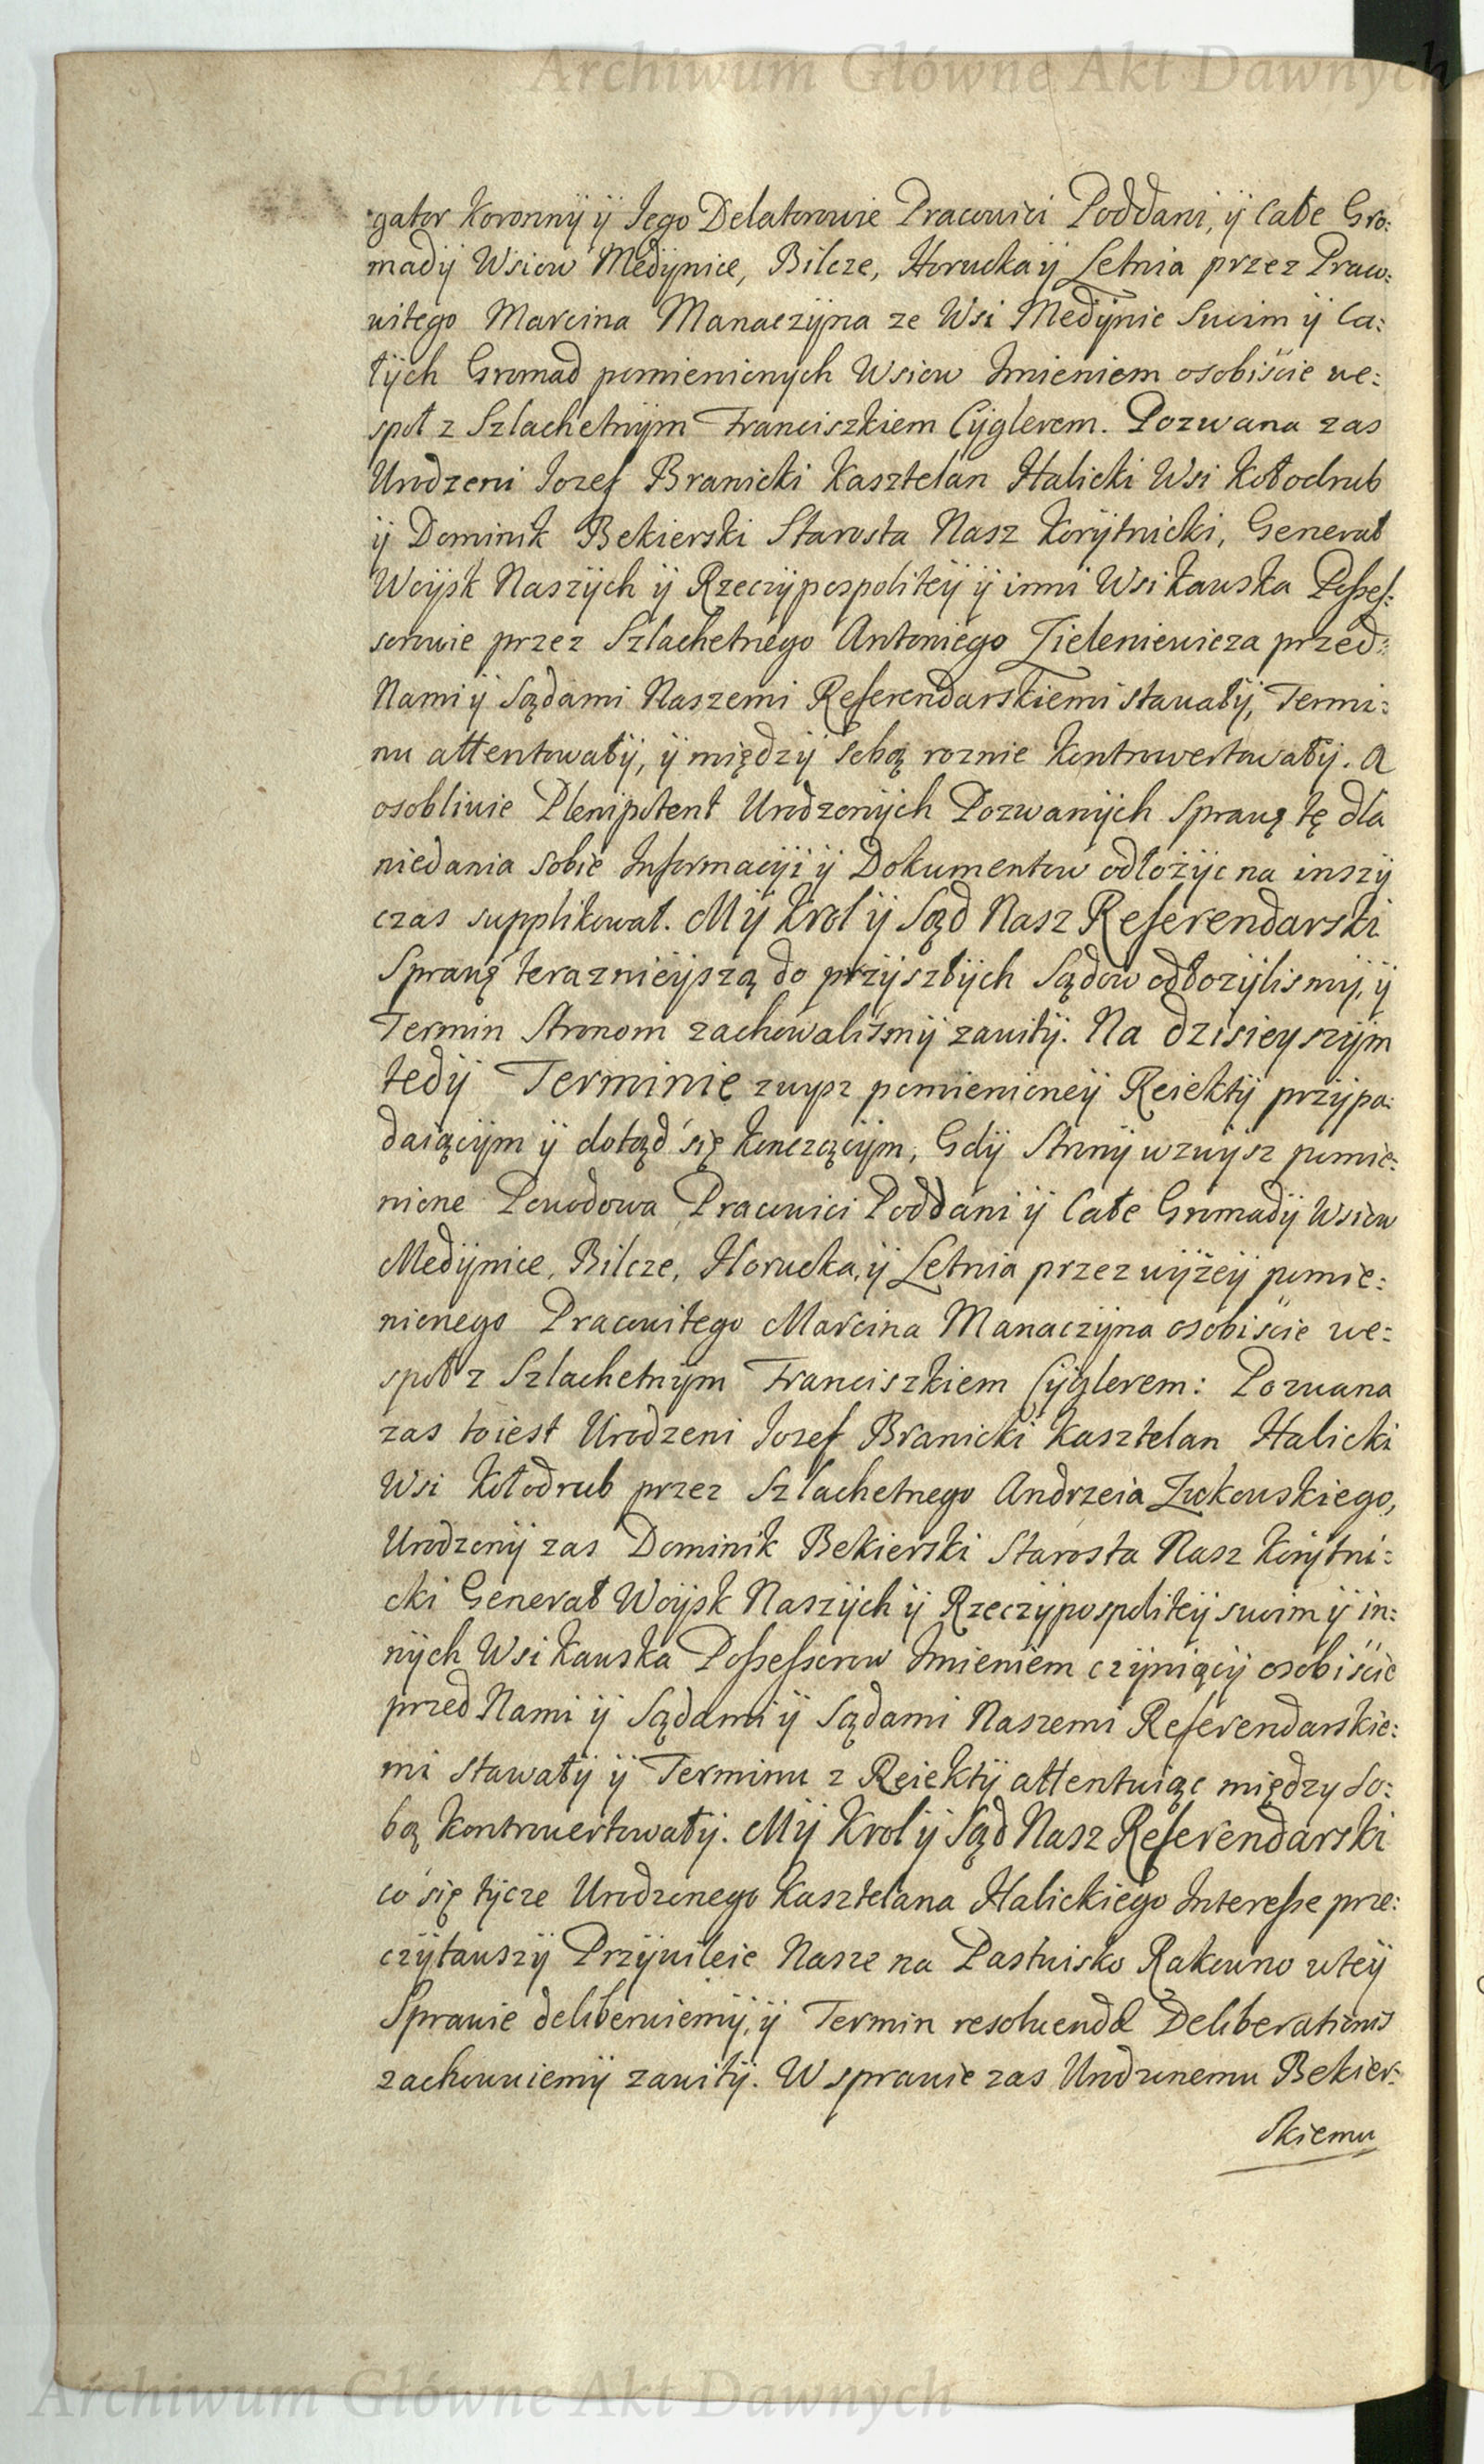 Archiwum Główne Akt Dawnych
gator Koronnÿ ÿ Jego Delatorowie Pracowici Poddani, ÿ Całe Gro:
madÿ Wsiow Medÿnice, Bilcze, Horucka ÿ Letnia przez Praco:
witego Marcina Manaczÿna ze Wsi Medÿnic Swim ÿ Ca:
łÿch Gromad pomienionÿch Wsiow Imieniem osobiście we:
społ z Szlachetnÿm Franciszkiem Cÿglerem. Pozwana zas
Urodzeni Jozef Branicki Kasztelan Halicki Wsi Kołodrub
ÿ Dominik Bekierski Starosta Nasz Korÿtnicki, Generał
Woÿsk Naszÿch ÿ Rzeczÿpospolitéÿ ÿ inni Wsi Kawska Possess:
sorowie przez Szlachetnego Antoniego Zieleniewicza przed:
Nami ÿ Sądami Naszemi Referendarskiemi stawałÿ, Termi:
nu attentowałÿ, ÿ międzÿ sobą roznie kontrowertowałÿ. A
osobliwie Plenipotent Urodzonÿch Pozwanÿch Sprawę tę dla
niedania sobie Informacÿi ÿ Dokumentow odłożÿc na inszÿ
czas supplikował. Mÿ Krol ÿ Sąd Nasz Referendarski
Sprawę teraznieÿszą do przÿszłÿch Sądow odłożÿlismÿ, ÿ
Termin Stronom zachowalismÿ zawitÿ. Na dzisieyszÿm
tedÿ Terminie zwysz pomienioneÿ Reiektÿ przÿpa:
daiącÿm ÿ dotąd się konczącÿm, Gdÿ Stronÿ wzwÿsz pomie:
nione Powodowa Pracowici Poddani ÿ Całe Gromadÿ Wsiow
Medÿnice, Bilcze, Horucka, ÿ Letnia przez wÿżeÿ pomie:
nionego Pracowitego Marcina Manaczÿna osobiście we:
społ z Szlachetnÿm Franciszkiem Cÿglerem: Pozwana
zas toiest Urodzeni Jozef Branicki Kasztelan Halicki
Wsi Kołodrub przez Szlachetnego Andrzeia Zukowskiego,
Urodzonÿ zas Dominik Bekierski Starosta Nasz Korÿtni:
cki Generał Woÿsk Naszÿch ÿ Rzeczÿpospolitéÿ swim ÿ in:
nÿch Wsi Kawska Possessorow Imieniem czÿniącÿ osobiście
przed Nami ÿ Sądami ÿ Sądami Naszemi Referendarskie:
mi stawałÿ ÿ Terminu z Reiektÿ attentuiąc między So:
bą kontrowertowałÿ. Mÿ Krol ÿ Sąd Nasz Referendarski
co się tÿcze Urodzonego Kasztelana Halickiego Interesse prze:
czÿtawszÿ Przÿwileie Nasze na Pastwisko Rakowno wteÿ
Sprawie deliberuiemÿ, ÿ Termin resolvendæ Deliberationis
zachowuiemÿ zawitÿ. W sprawie zas Urodzonemu Bekier:
skiemu
Archiwum Główne Akt Dawnych